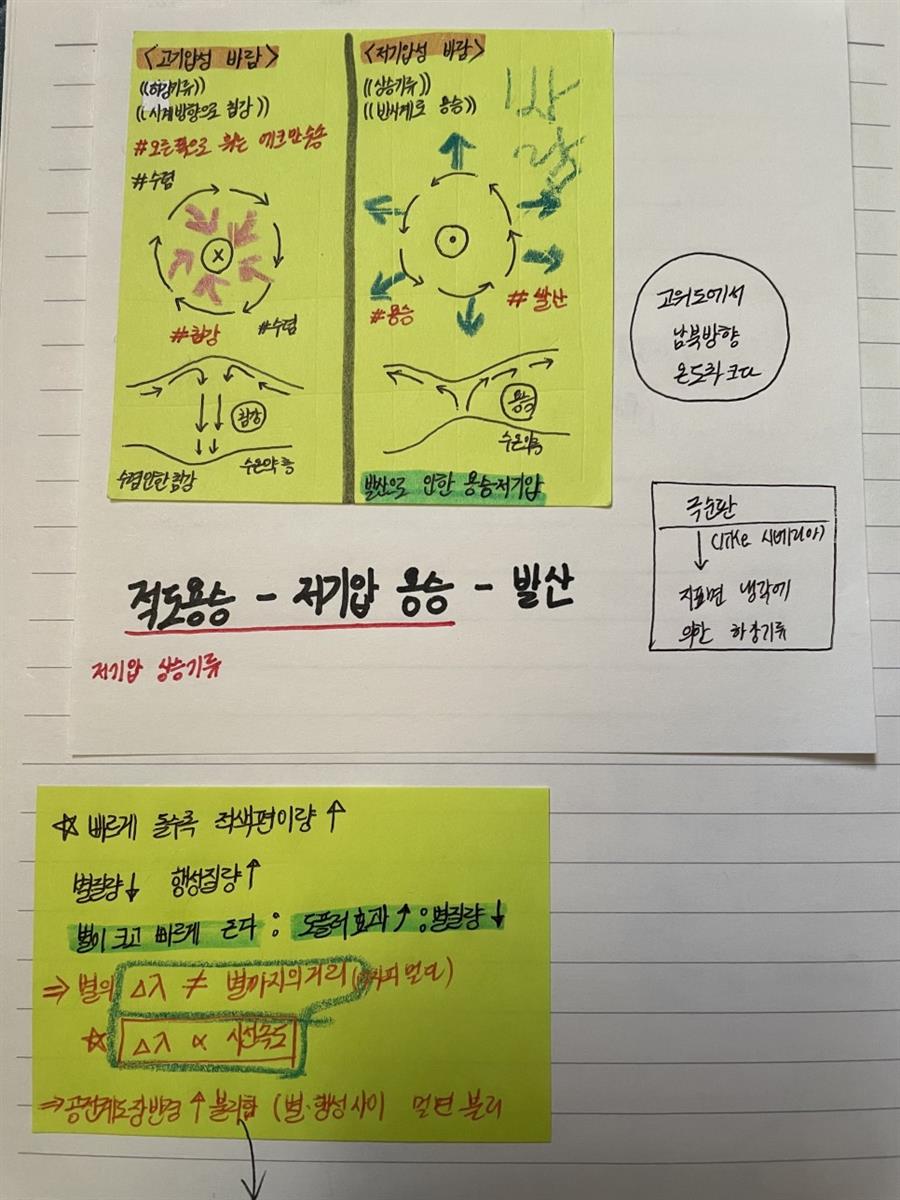 <고기압성 바람>
((하강기류))
((시계방향으로 침강))
#오른쪽으로 휘는 에크만수송
#수렴
X
#침강
#수렴
침강
수온약층
수렴인한침강
<저기압성 바람>
((상승기류))
(반시계로 용승))
발
#용승
#발산
용승
수온약층
발산으로 인한 용승저기압
고위도에서
남북방향
온도차 크다
극순환
(like 시베리아)
지표면 냉각에
의한 하강기류
적도용승 - 저기압 용승 - 발산
저기압 상승기류
☆ 빠르게 돌수록 적색편이량 ↑
별질량↓ 행성질량↑
별이 크고 빠르게 돈다 : 도플러효과↑ : 별질량↓
⇒ 별의 Δλ ≠ 별까지의거리 (어차피 멀다)
☆ Δλ ∝ 시선속도
⇒공전궤도장반경 ↑ 불리함 (별·행성사이 멀면 불리